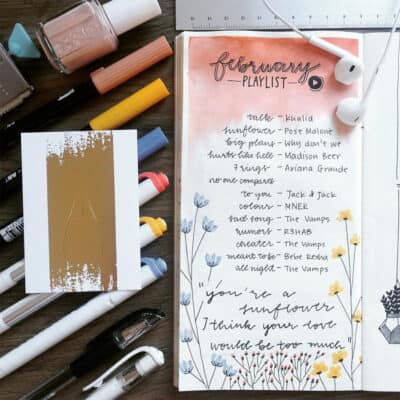 february
PLAYLIST
talk - Khalid
sunflower - Post Malone
big plans - Why don't we
hurts like hell - Madison Beer
7 rings - Ariana Grande
no one compares
to you - Jack & Jack
colour - MNEK
sad song - The Vamps
rumors - R3HAB
cheater - The Vamps
meant to be - Bebe Rexha
all night - The Vamps
"you're a
sunflower
I think your love
would be too much"